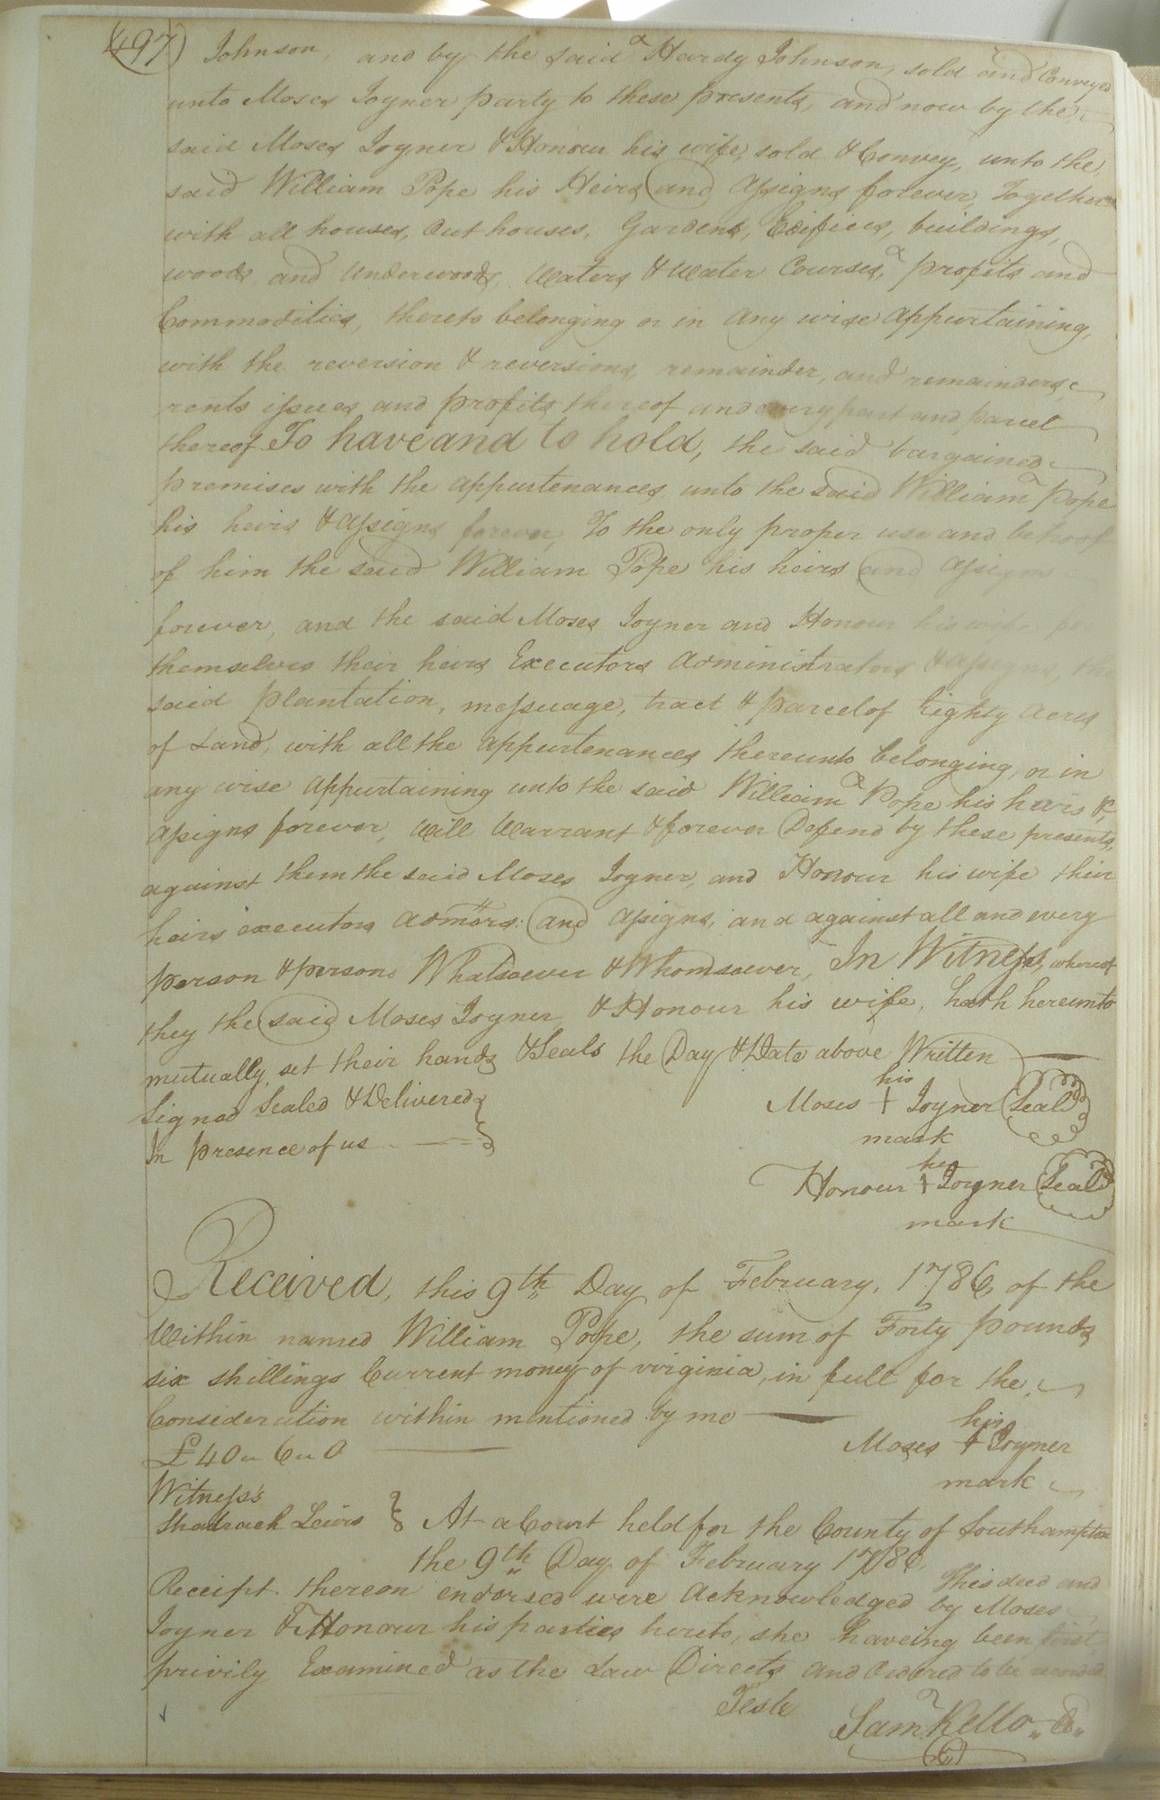 (497) Johnson, and by the said Hardy Johnson, sold and Conveyed
unto Moses Joyner party to these presents, and now by the
said Moses Joyner & Honour his wife, sold & Convey, unto the
said William Pope his Heirs and Assigns forever, Together
with all houses, Out houses, Gardens, Edifices, buildings,
woods and Underwoods, Waters & Water Courses, profits and
Commodities, thereto belonging or in any wise appurtaining,
with the reversion & reversions, remainder, and remainders,
rents issues and profits thereof and every part and parcel
thereof To have and to hold, the said bargained
premises with the appurtenances unto the said William Pope
his heirs & assigns forever, To the only proper use and behoof
of him the said William Pope his heirs and assigns
forever, and the said Moses Joyner and Honour his wife
themselves their heirs Executors Administrators & assigns, the
said plantation, messuage, tract & parcel of Eighty Acres
of Land, with all the appurtenances thereunto belonging, or in
any wise appurtaining unto the said William Pope his heirs &
assigns forever, will Warrant & forever Defend by these presents,
against them the said Moses Joyner, and Honour his wife their
heirs executors admors. and assigns, and against all and every
person & persons Whatsoever & Whomsoever, In Witness, whereof
they the said Moses Joyner & Honour his wife, hath hereunto
mutually set their hands & Seals the Day & Date above Written
Signed Sealed & Delivered
In presence of us
his
Moses + Joyner Seal
mark
her
Honour + Joyner Seal
mark
Received, this 9th Day of February, 1786, of the
Within named William Pope, the sum of Forty pounds
six shillings Current money of virginia, in full for the
Consideration within mentioned by me
£40 „ 6 „ 0
his
Moses + Joyner
mark
Witness's
Shadrach Lewis } At a Court held for the County of Southampton
the 9th Day of February 1786 This deed and
Receipt thereon endorsed were Acknowledged by Moses
Joyner & Honour his parties hereto, she haveing been first
privily Examined as the Law Directs and Ordered to be recorded
Teste
Sam Kello